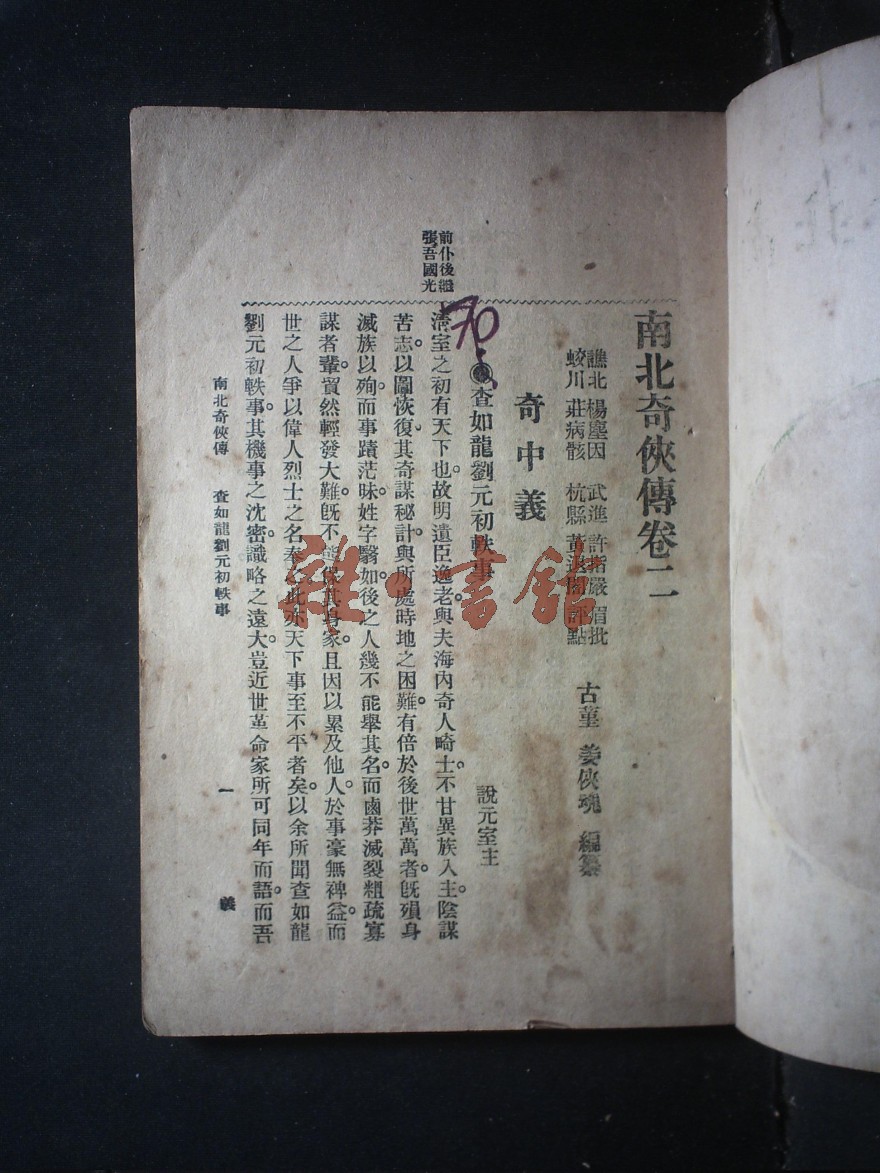 南北奇俠傳卷二
譙北 楊塵因 武進 許指嚴 眉批
蛟川 莊病骸 杭縣 董退閣 評點
古菫 姜俠魂 編纂
奇中義
說元室主
查如龍劉元初軼事
清室之初有天下也。故明遺臣逸老。與夫海內奇人畸士。不甘異族入主。陰謀
苦志。以圖恢復。其奇謀秘計。與所處時地之困難。有倍於後世萬萬者。旣殞身
滅族以殉。而事蹟茫昧。姓字翳如。後之人幾不能舉其名。而鹵莽滅裂粗疏寡
謀者輩。貿然輕發大難。旣不能保其身家。且因以累及他人。於事豪無裨益。而
世之人爭以偉人烈士之名奉之。此亦天下事至不平者矣。以余所聞查如龍
劉元初軼事。其機事之沈密。識略之遠大。豈近世革命家所可同年而語。而吾
前仆後繼
張吾國光
南北奇俠傳 查如龍劉元初軼事
一
義
70
雜·書館